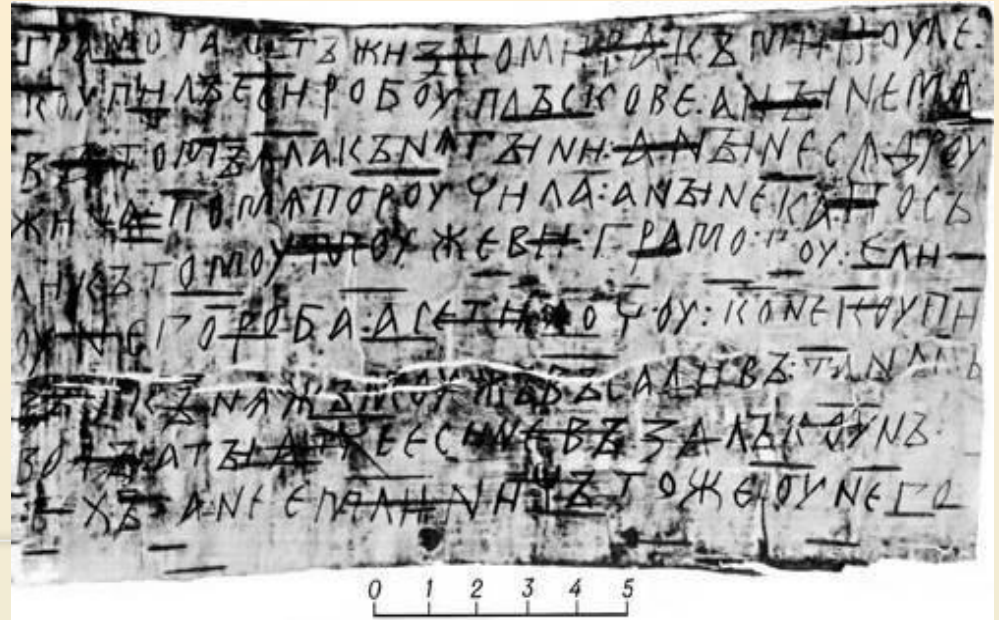 ГРАМОТА ОТЪ ЖИЗНОМИРА КЪ МИКОУЛЕ:
КОУПИЛЪ ЕСИ РОБОУ ПЛЪСКОВЕ: А НЪІНЕ МѦ:
ВЪ ТОМЪ ѦЛА КЪНѦГЪІНИ: А НЪІНЕ СѦ ДРОУ
ЖИНА ПО МѦ ПОРОУЧИЛА: А НЪІНЕ КА ПОСЪ
ЛИ КЪ ТОМОУ МОУЖЕВИ: ГРАМОТОУ: ЕЛИ
ОУ НЕГО РОБА: А СЕ ТИ ХОЧОУ: КОНЕ КОУПИ
ВЪ И КЪНѦЖЪ МОУЖЪ ВЪСАДИВЪ: ТА НА СЪ
ВОДЪІ А ТЪІ АТЧЕ ЕСИ НЕ ВЪЗАЛЪ КОУНЪ:
ТЕХЪ А НЕ ЕМЛИ НИЧЪТОЖЕ ОУ НЕГО
0 1 2 3 4 5